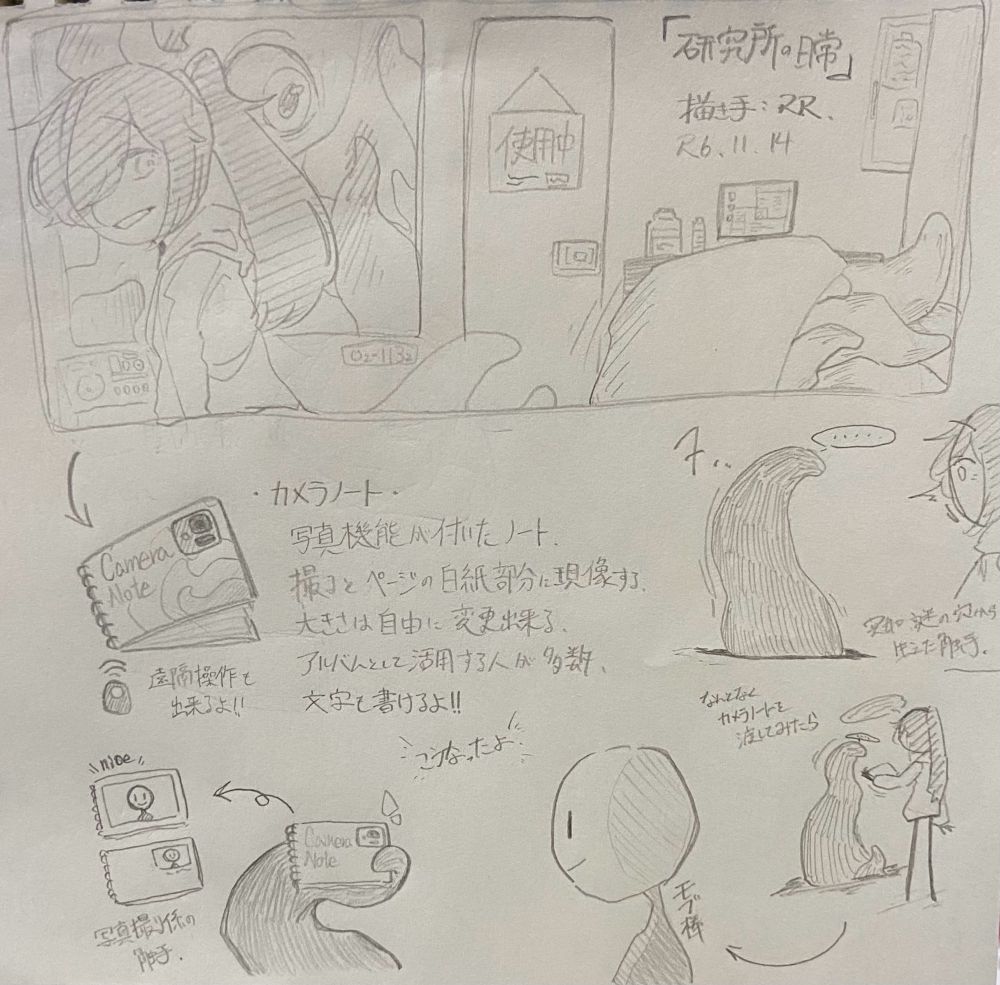 「研究所の日常」
描き手：RR.
R6.11.14
使用中
02-1132
・カメラノート・
写真機能が付いたノート.
撮るとページの白紙部分に現像する.
大きさは自由に変更出来る.
アルバムとして活用する人が多数.
文字も書けるよ!!
Camera
Note
遠隔操作も
出来るよ!!
.....
突如謎の穴から
出てきた触手.
なんとなく
カメラノートを
渡してみたら
こうなったよ
nice
Camera
Note
写真撮り係の
触手.
モブ棒